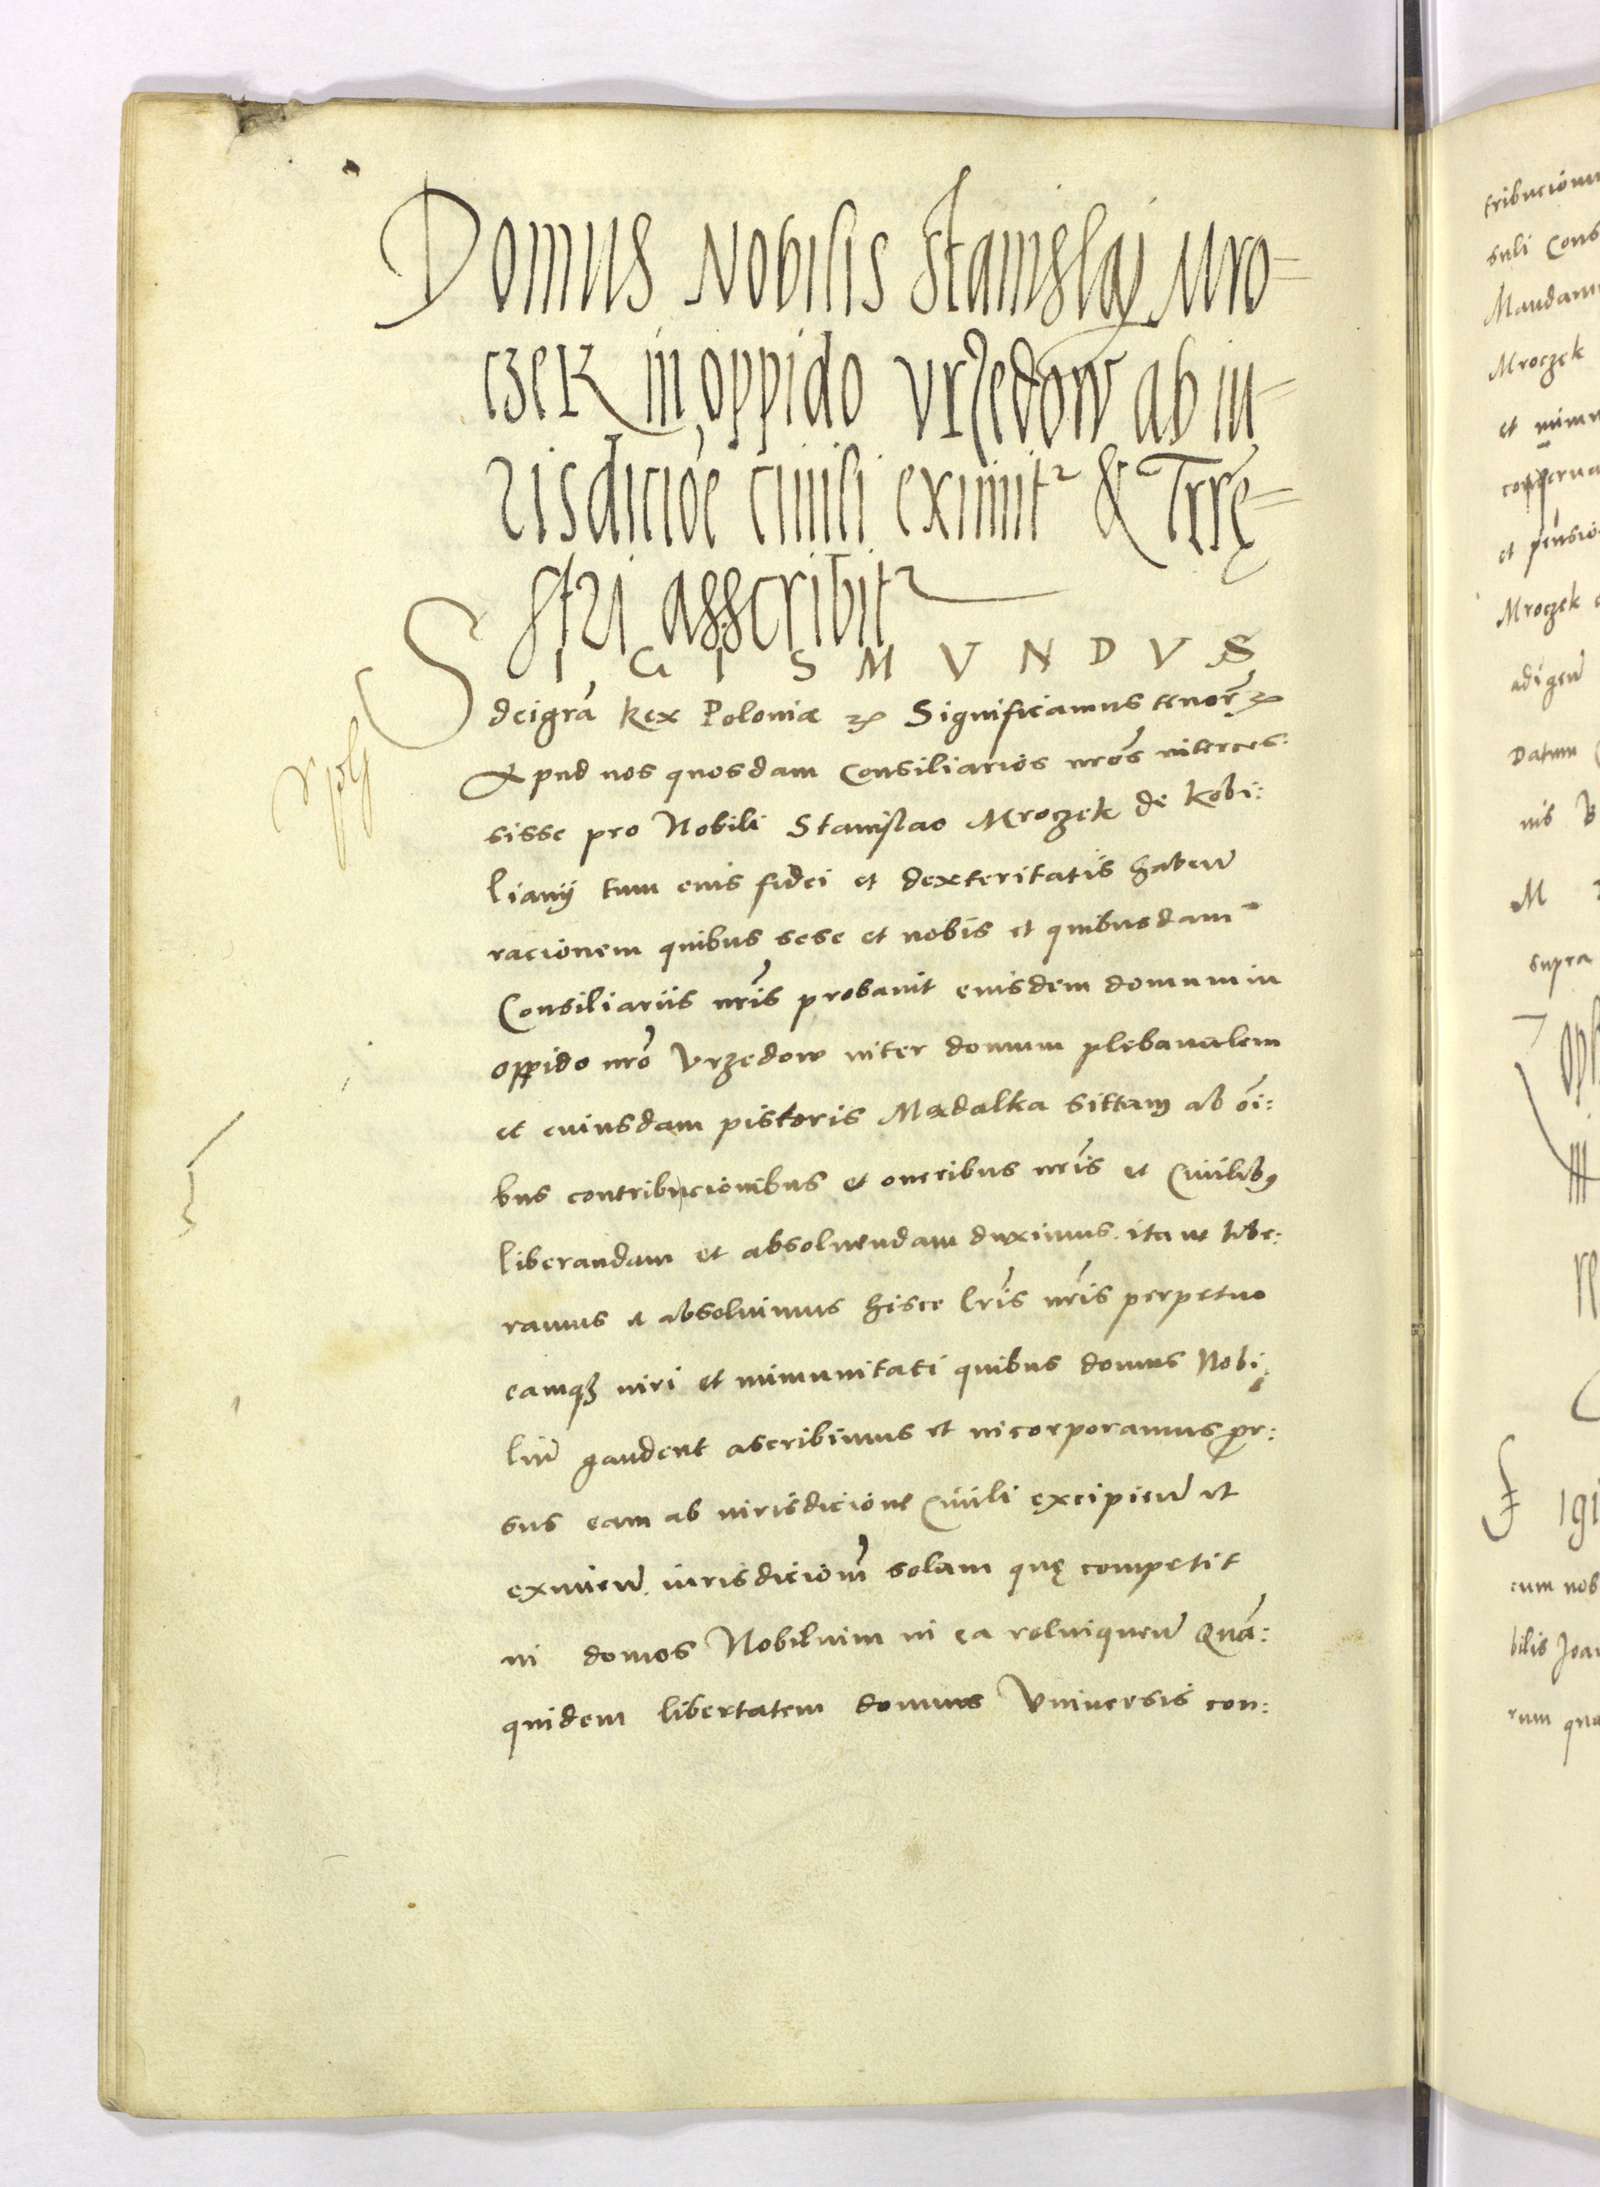 Domus Nobilis Stanislaj Mro=
czek in oppido Vrzedow ab iu=
risdicioe ciuili eximit & Trrę=
stri asscribit
SIGISMVNDVS
dei gra Rex Poloniæ Significamus tenor
Apud nos quosdam Consiliarios nros interces:
sisse pro Nobili Stanislao Mroczek de Kobi:
lianij tum eius fidei et dexteritatis haben
racionem quibus sese et nobis et quibusdam
Consiliariis nris probauit eiusdem domum in
oppido nro Vrzedow inter domum plebanalem
et cuiusdam pistoris Madalka sittam ab oi:
bus contribucionibus et oneribus nris et Ciuilibus
liberandam et absoluendam duximus. ita ut libe:
ramus et absoluimus hisce lris nris perpetuo
eamqz iuri et immunitati quibus domus Nobi:
liu gaudent ascribimus et incorporamus pror:
sus eam ab iurisdicione Ciuili excipien et
eximen. iurisdiciom solam quę competit
in domos Nobilium in ea relinquen Qua:
quidem libertatem domus Vniuersis con:
tribucionu
suli Cons
Mandam
Mroczek
et
et pensio
Mroczek
adigen
Datum
nis
M
supra
igi
cum nob
bilis Joan
rum qua